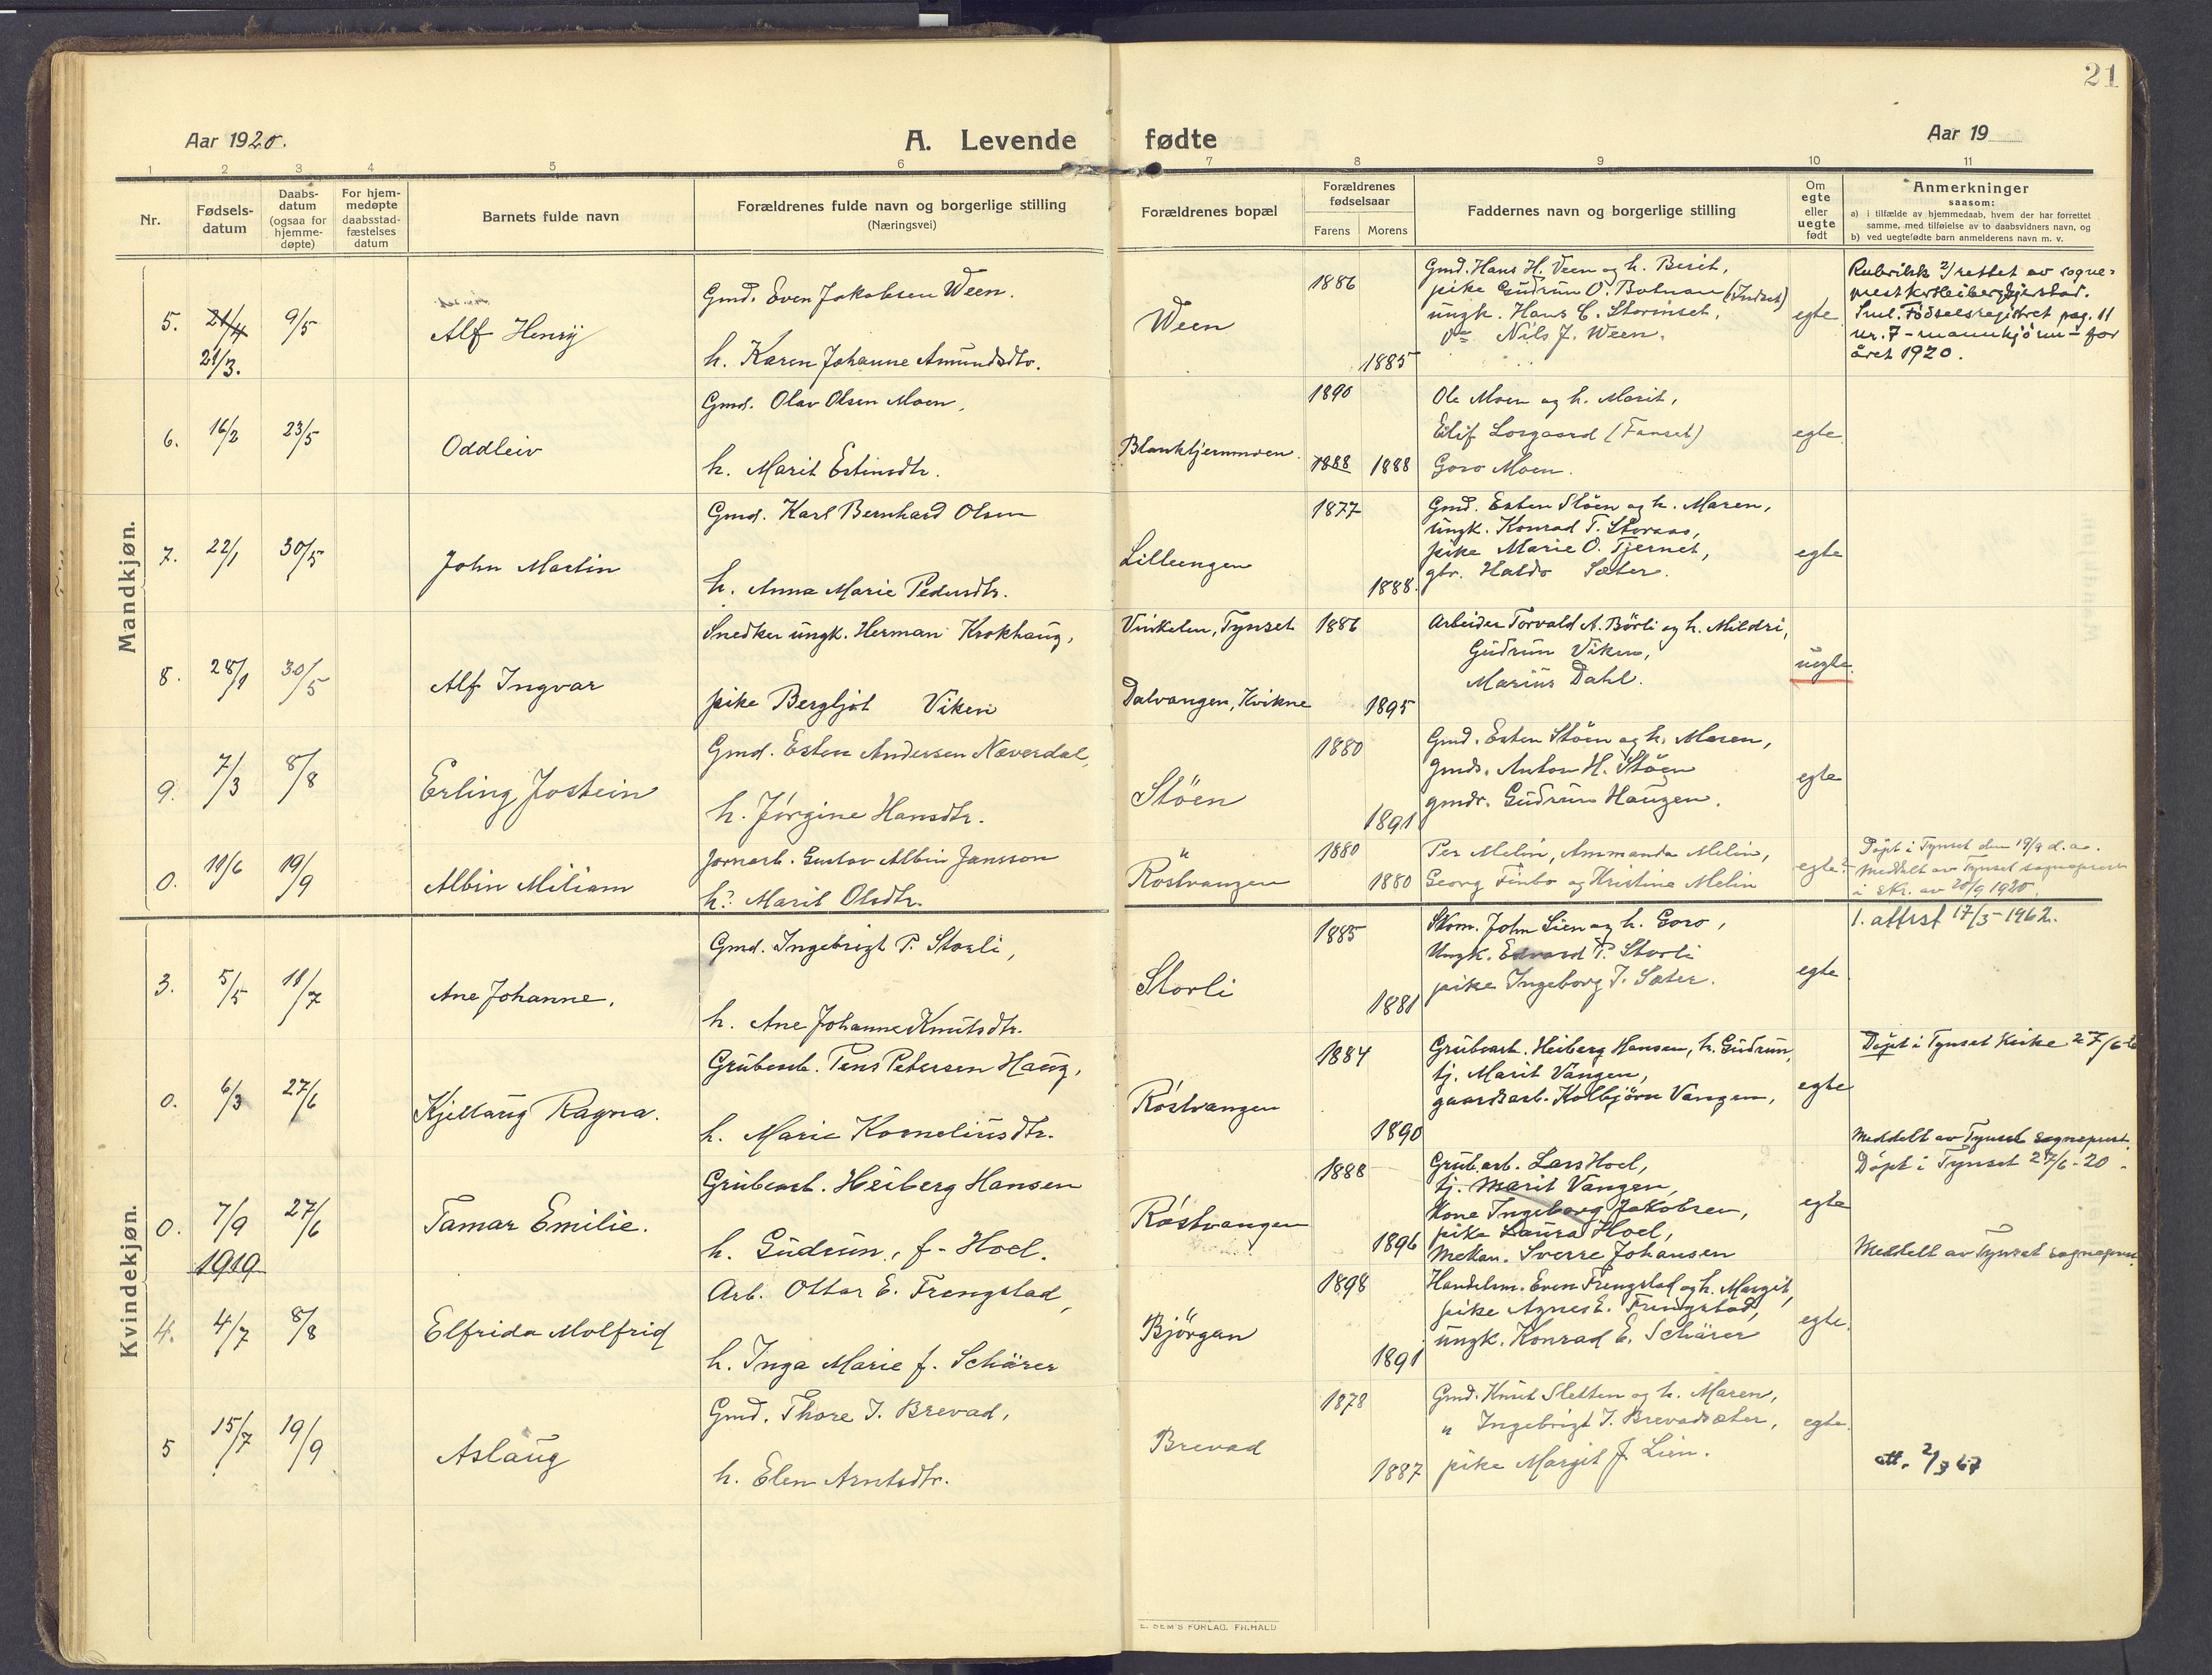 21
Aar 1920.
A. Levende fødte
Aar 19
1 2 3 4 5 6 7 8 9 10 11
Nr.
Fødsels-
datum
Daabs-
datum
(ogsaa for
hjemme-
døpte)
For hjem-
medøpte
daabsstad-
fæstelses
datum
Barnets fulde navn
Forældrenes fulde navn og borgerlige stilling
(Næringsvei)
Forældrenes bopæl
Forældrenes
fødselsaar
Farens Morens
Faddernes navn og borgerlige stilling
Om
egte
eller
uegte
født
Anmerkninger
saasom:
a) i tilfælde av hjemmedaab, hvem der har forrettet
samme, med tilføielse av to daabsvidners navn, og
b) ved uegtefødte barn anmelderens navn m. v.
Mandkjøn.
5. 21/4 9/5
21/3.
Alf Henry
Gmd. Even Jakobsen Ween.
h. Karen Johanne Amundsdtr.
Ween
1886
1885
Gmd. Hans H. Veen og h. Berit,
pike Gudrun O. Botnan (Indset)
ungk. Hans C. Storinset,
do Nils J. Ween.
egte
Rubrikk 2/ rettet av sogne-
prest
Sml. Födselsregistret pag. 11
nr. 7 - mannkjönn - for
året 1920.
6. 16/2 23/5
Oddleiv
Gmd. Olav Olsen Moen,
h. Marit Estinsdtr.
Blanktjernmoen.
1890
1888 1888
Ole Moen og h. Marit,
Eilif Losgaard (Fanset)
Goro Moen.
egte.
7. 22/1 30/5
John Martin
Gmd. Karl Bernhard Olsen
h. Anna Marie Pedersdtr.
Lilleengen
1877
1888.
Gmd. Esten Stöen og h. Maren,
ungk. Konrad T. Storaas,
pike Marie O. Tjernet,
gbr. Haldo Sæter.
egte
8. 28/1 30/5
Alf Ingvar
Snedker ungk. Herman Krokhaug,
pike Bergljot Viken
Vinkelen, Tynset
Dalvangen, Kvikne
1886
1895
Arbeider Torvald A. Börli og h. Mildri,
Gudrun Viken,
Marius Dahl.
uegte.
9. 7/3 8/8
Erling Jostein
Gmd. Esten Andersen Næverdal,
h. Jørgine Hansdtr.
Stöen
1880
1891
Gmd. Esten Stöen og h. Maren,
gmds. Anton H. Stöen
gmdr. Gudrun Haugen.
egte
0. 11/6 19/9
Albin Miliam
Jernarb. Gustav Albin Jansson
h? Marit Olsdtr.
Röstvangen
1880
1880
Per Melin, Ammanda Melin,
Georg Finbo og Kristine Melin
egte?
Döpt i Tynset den 19/9 d.a.
Meddelt av Tynset sogneprest
i skr. av 20/9 1920.
Kvindekjøn.
3. 5/5 11/7
Ane Johanne.
Gmd. Ingebrigt P. Storli,
h. Ane Johanne Knutsdtr.
Storli
1885
1881
Skom. John Lien og h. Goro,
Ungk. Edvard P. Storli
pike Ingeborg J. Sæter.
egte
1. attest 17/3-1962.
0. 6/3 27/6
Kjellaug Ragna.
Grubearb. Jens Petersen Haug,
h. Marie Korneliusdtr.
Röstvangen
1884
1890
Grubearb. Heiberg Hansen, h. Gudrun,
tj. Marit Vangen,
gaardsarb. Kolbjörn Vangen,
egte
Döpt i Tynset Kirke 27/6-20
Meddelt av Tynset sogneprest.
0. 7/9 27/6
1919
Tamar Emilie.
Grubearb. Heiberg Hansen
h. Gudrun, f. Hoel.
Röstvangen
1888
1896
Grub.arb. Lars Hoel,
tj. Marit Vangen,
Kone Ingeborg Jakobsen,
pike Laura Hoel,
Mekan. Sverre Johansen
egte
Döpt i Tynset 27/6-20
Meddelt av Tynset sogneprest.
4. 4/7 8/8
Elfrida Molfrid
Arb. Ottar E. Frengstad,
h. Inga Marie f. Schärer
Björgan
1898
1891
Handelsm. Even Frengstad og h. Margit,
pike Agnes E. Frengstad,
ungk. Konrad E. Schärer
egte.
5 15/7 19/9
Aslaug
Gmd. Thore J. Brevad,
h. Elen Arntsdtr.
Brevad
1878
1887
Gmd. Knut Sletten og h. Maren,
" Ingebrigt J. Brevadsæter,
pike Margit J. Lien.
egte.
att. 2/3 67
E. SEM'S FORLAG, FR.HALD